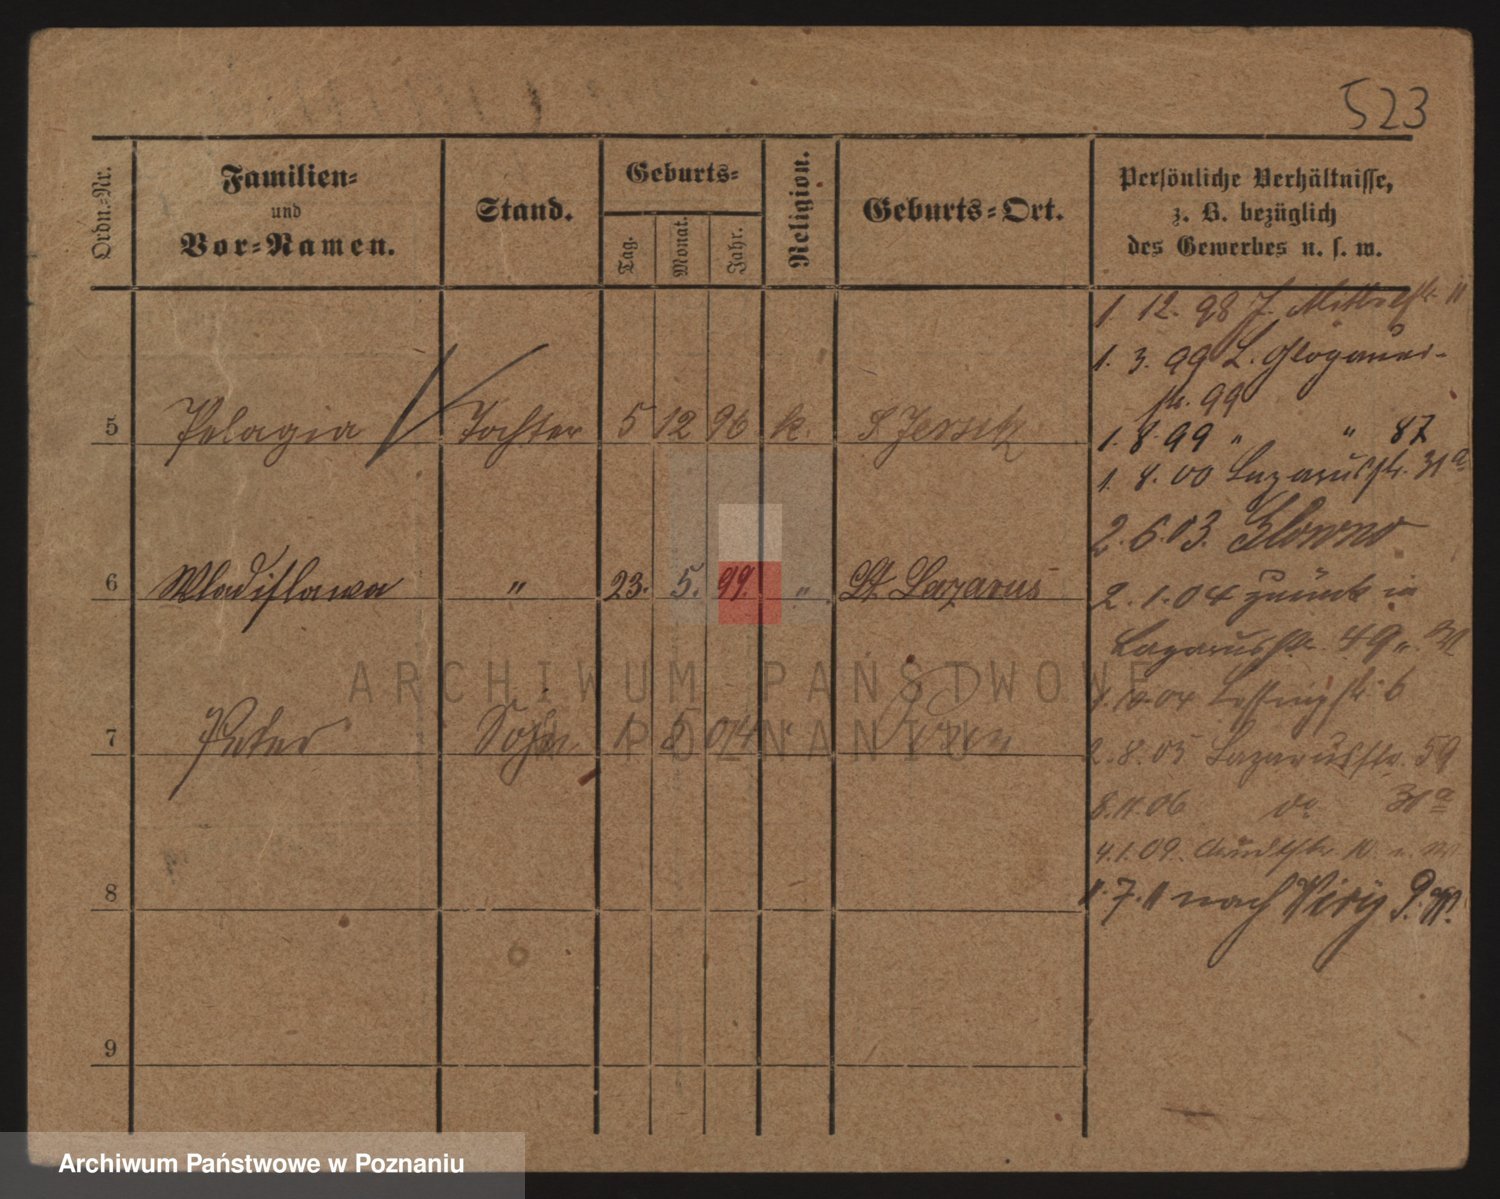 523
Ordn.-Nr.
Familien-
und
Vor-Namen.
Stand.
Geburts-
Tag.
Monat.
Jahr.
Religion.
Geburts-Ort.
Persönliche Verhältnisse,
z. B. bezüglich
des Gewerbes u. s. w.
1. 12. 98 J. Mittelstr. 11
1. 3. 99 L. Glogauer-
str. 99
5 Pelagia Tochter 5 12 96 k. Jersitz
1. 8. 99 " " 87
1. 8. 00 Lazarusstr. 31a
2. 6. 03. Glowno
6 Wladislawa " 23. 5. 99. " St. Lazarus
2. 1. 04 zurück in
Lazarusstr. 49
Lessingstr. 6
7 Peter Sohn 1 5 04 " Posen
2. 8. 05 Lazarusstr. 59
8. 11. 06 do 31a
4. 1. 09.
8
11. 7. 11 nach Viry P. W.
9
ARCHIWUM PAŃSTWOWE
POZNANIU
Archiwum Państwowe w Poznaniu